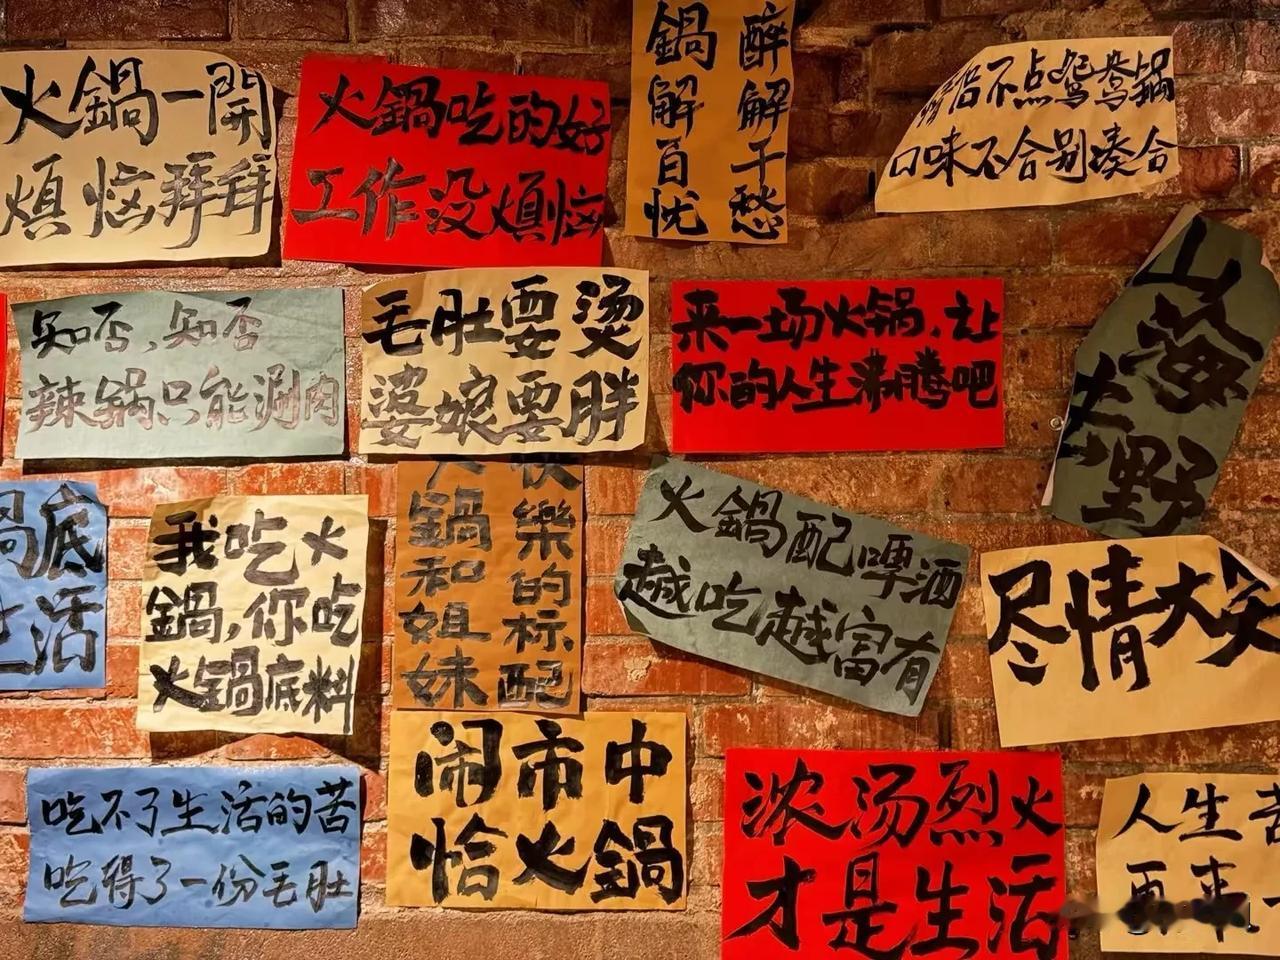 火鍋一開
煩恼拜拜
火鍋吃的好
工作没煩恼
醉解千愁
鍋解百忧
情侣不点鸳鸯锅
口味不合别凑合
知否，知否
辣锅只能涮肉
毛肚要烫
婆娘要胖
来一场火锅，让
你的人生沸腾吧
山海
野
底
活
我吃火
鍋，你吃
火鍋底料
快樂的标配
火鍋和姐妹
火鍋配啤酒
越吃越富有
尽情大笑
吃不了生活的苦
吃得了一份毛肚
闹市中
恰火鍋
浓汤烈火
才是生活
人生苦
再来一